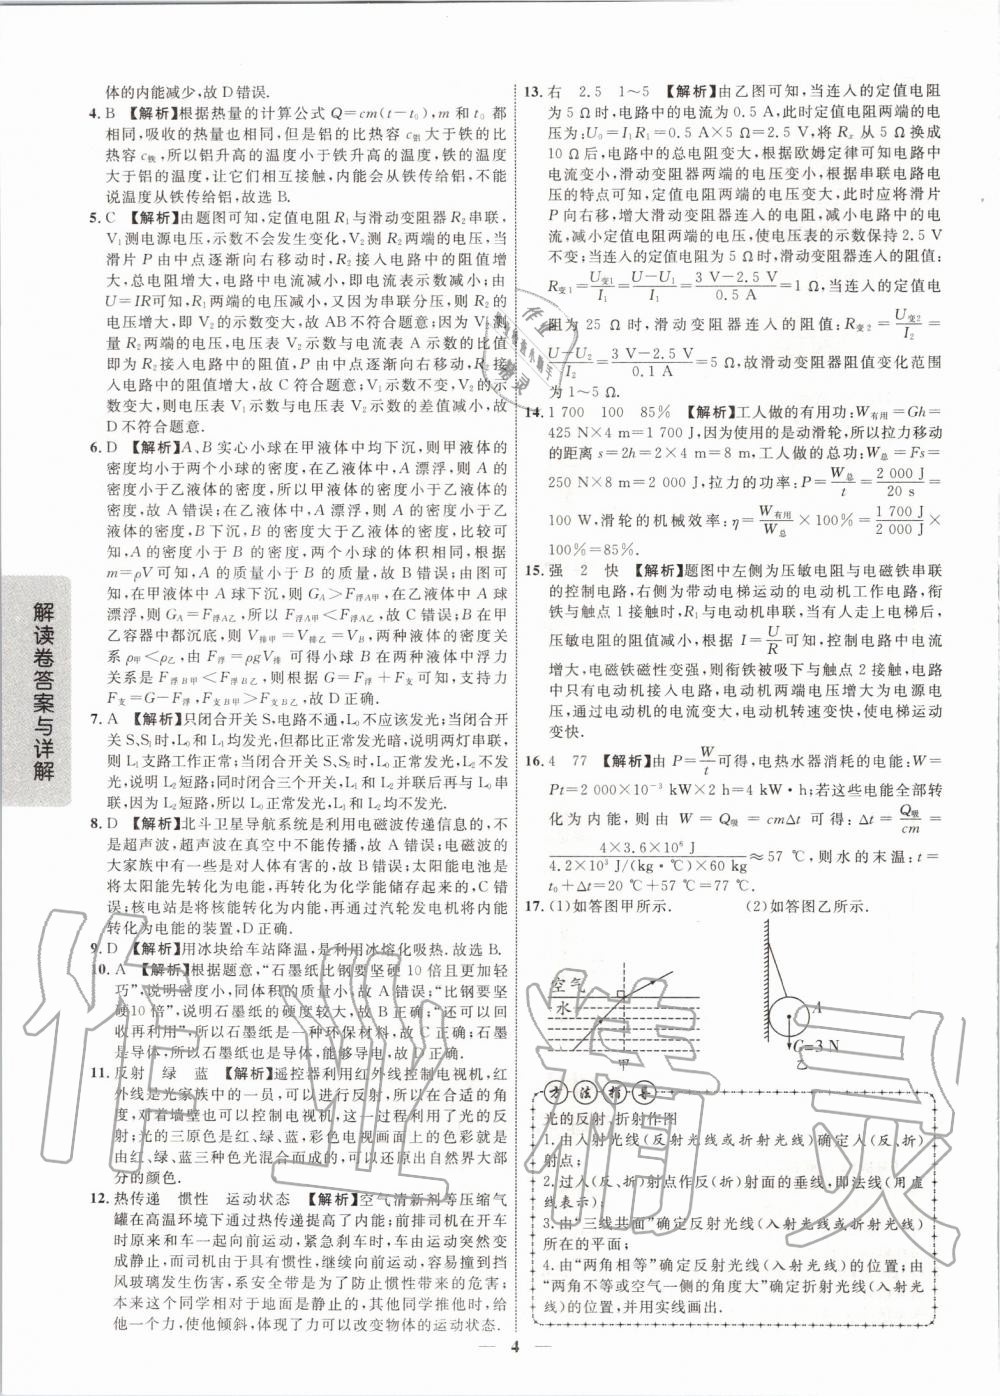 体的内能减少,故 D 错误.
4. B 【解析】根据热量的计算公式 Q=cm(t-t₀),m 和 t₀ 都
相同,吸收的热量也相同,但是铝的比热容 c铝大于铁的比
热容 c铁,所以铝升高的温度小于铁升高的温度,铁的温度
大于铝的温度,让它们相互接触,内能会从铁传给铝,不能
说温度从铁传给铝,故选 B.
5. C 【解析】由题图可知,定值电阻 R₁与滑动变阻器 R₂ 串联,
V₁测电源电压,示数不会发生变化,V₂测 R₂ 两端的电压,当
滑片 P 由中点逐渐向右移动时,R₂ 接入电路中的阻值增
大,总电阻增大,电路中电流减小,即电流表示数减小;由
U=IR可知,R₁两端的电压减小,又因为串联分压,则 R₂的
电压增大,即 V₂的示数变大,故 AB不符合题意;因为V₂测
量 R₂两端的电压,电压表 V₂示数与电流表 A 示数的比值
即为 R₂接入电路中的阻值,P 由中点逐渐向右移动,R₂接
入电路中的阻值增大,故 C 符合题意;V₁示数不变,V₂的示
数变大,则电压表 V₁示数与电压表 V₂示数的差值减小,故
D 不符合题意.
6. D 【解析】A、B 实心小球在甲液体中均下沉,则甲液体的
密度均小于两个小球的密度,在乙液体中,A 漂浮,则 A 的
密度小于乙液体的密度,所以甲液体的密度小于乙液体的
密度,故 A 错误;在乙液体中,A 漂浮,则 A 的密度小于乙
液体的密度,B 下沉,B 的密度大于乙液体的密度,比较可
知,A 的密度小于 B 的密度,两个小球的体积相同,根据
m=ρV可知,A 的质量小于 B 的质量,故 B 错误;由图可
知,在甲液体中 A 球下沉,则 GA>F浮A甲,在乙液体中 A 球
漂浮,则 GA=F浮A乙,所以 F浮A甲<F浮A乙,故 C 错误;B 在甲
乙容器中都沉底,则 V排甲=V排乙=V,两种液体的密度关
系 ρ甲<ρ乙,由 F浮=ρgV排 可得小球 B 在两液体中浮力
关系是 F浮B甲<F浮B乙,则根据 G=F浮+F支可知,支持力
F支=G-F浮,F支B甲>F支B乙,故 D 正确.
7. A 【解析】只闭合开关 S,电路不通,L₀不应该发光;当闭合
开关S、S₁时,L₀和 L₁均发光,但比正常发光暗,说明两灯串联,
则 L₁支路工作正常;当闭合开关S、S₂时,L₀正常发光,L₂不发
光,说明 L₂短路;同时闭合三个开关,L₁和L₂并联后再与L₀串
联,因为 L₂短路,所以 L₀正常发光,L₁不亮,L₂不亮,故选 A.
8. D 【解析】北斗卫星导航系统是利用电磁波传递信息的,不
是超声波,超声波在真空中不能传播,故 A 错误;电磁波的
大家族中有一些是对人体有害的,故 B 错误;太阳能电池是
将太阳能先转化为电能,再转化为化学能储存起来的,C 错
误;核电站是将核能转化为内能,再通过汽轮发电机将内能
转化为电能的装置,D 正确.
9. D 【解析】用冰块给车站降温,是利用冰熔化吸热.故选 B.
10. A 【解析】根据题意,“石墨纸比钢要坚硬 10 倍且更加轻
巧”,说明密度小,同体积的质量小,故 A 错误;“比钢要坚
硬10 倍”,说明石墨纸的硬度较大,故 B 正确;“还可以回
收再利用”,所以石墨纸是一种环保材料,故 C 正确;石墨
是导体,所以石墨纸也是导体,能够导电,故 D 正确.
11. 反射 绿 蓝 【解析】遥控器利用红外线控制电视机,红
外线是光家族中的一员,可以进行反射,所以在合适的角
度,对着墙壁也可以控制电视机,这一过程利用了光的反
射;光的三原色是红、绿、蓝,彩色电视画面上的丰富色彩
由红、绿、蓝三种色光混合而成的,可以还原出自然界大部
分的颜色.
12. 热传递 惯性 运动状态 【解析】空气清新剂等压缩气
罐在高温环境下通过热传递提高了内能;前排司机在开车
时原来和车一起向前运动,紧急刹车时,由于运动突然变
成静止,而司机由于具有惯性,继续向前运动,会撞到挡
风玻璃发生伤害,系安全带是为了防止惯性带来的危害;
本来这个同学相对于地面是静止的,其他同学推他时,给他一
个力,使他倾斜,体现了力可以改变物体的运动状态.
13. 右 2.5 1～5 【解析】由乙图可知,当连入的定值电阻
为 5 Ω时,电路中的电流为 0.5 A,此时定值电阻两端的电
压为:U₀=I₁R₁=0.5 A×5 Ω=2.5 V,将 Rₓ 从 5 Ω换成
10 Ω后,电路中的总电阻变大,根据欧姆定律可知电路中
电流变小,滑动变阻器两端的电压变小,根据串联电路电
压的特点可知,定值电阻两端的电压变大,此时应将滑片
P 向右移,增大滑动变阻器连入的电阻,减小电路中的电
流,减小定值电阻的电压,使电压表的示数保持 2.5 V
不变;当连入的定值电阻为 5 Ω时,滑动变阻器连入的阻值:
R变1=U变1/I₁=(U-U₁)/I₁=(3 V-2.5 V)/0.5 A=1 Ω,当连入的定值电
阻为 25 Ω时,滑动变阻器连入的阻值:R变2=U变2/I₂=
(U-U₂)/I₂=(3 V-2.5 V)/0.1 A=5 Ω,故滑动变阻器阻值变化范围
为 1～5 Ω.
14. 1 700 100 85% 【解析】工人做的有用功:W有用=Gh=
425 N×4 m=1 700 J,因为使用的是动滑轮,所以拉力移动
的距离 s=2h=2×4 m=8 m,工人做的总功:W总=Fs=
250 N×8 m=2 000 J,拉力的功率:P=W总/t=2 000 J/20 s=
100 W,滑轮的机械效率:η=W有用/W总×100%=1 700 J/2 000 J×
100%=85%.
15. 强 2 快 【解析】题图中左侧为压敏电阻与电磁铁串联
的控制电路,右侧为带动电梯运动的电动机工作电路,衔
铁与触点 1 接触时,R₁与电动机串联,当有人走上电梯后,
压敏电阻的阻值减小,根据 I=U/R可知,控制电路中电流
增大,电磁铁磁性变强,则衔铁被吸下与触点 2 接触,电路
中只有电动机接入电路,电动机两端电压增大为电源电
压,通过电动机的电流变大,电动机转速变快,使电梯运动
变快.
16. 4 77 【解析】由 P=W/t可得,电热水器消耗的电能:W=
Pt=2 000×10⁻³ kW×2 h=4 kW·h;若这些电能全部转
化为内能,则由 W=Q吸=cmΔt 可得:Δt=Q吸/cm=
4×3.6×10⁶ J/4.2×10³ J/(kg·℃)×60 kg≈57 ℃,则水的末温:t=
t₀+Δt=20 ℃+57 ℃=77 ℃.
17. (1)如答图甲所示. (2)如答图乙所示.
空气
水
甲
A
G=3 N
乙
方法指导
光的反射、折射作图
1. 由入射光线(反射光线或折射光线)确定入(反、折)
射点;
2. 过入(反、折)射点作反(折)射面的垂线,即法线(用虚
线表示);
3. 由“三线共面”确定反射光线(入射光线或折射光线)
所在的平面;
4. 由“两角相等”确定反射光线(入射光线)的位置;由
“两角不等或空气一侧的角度大”确定折射光线(入射光
线)的位置,并用实线画出.
解读卷答案与详解
4
作业精灵